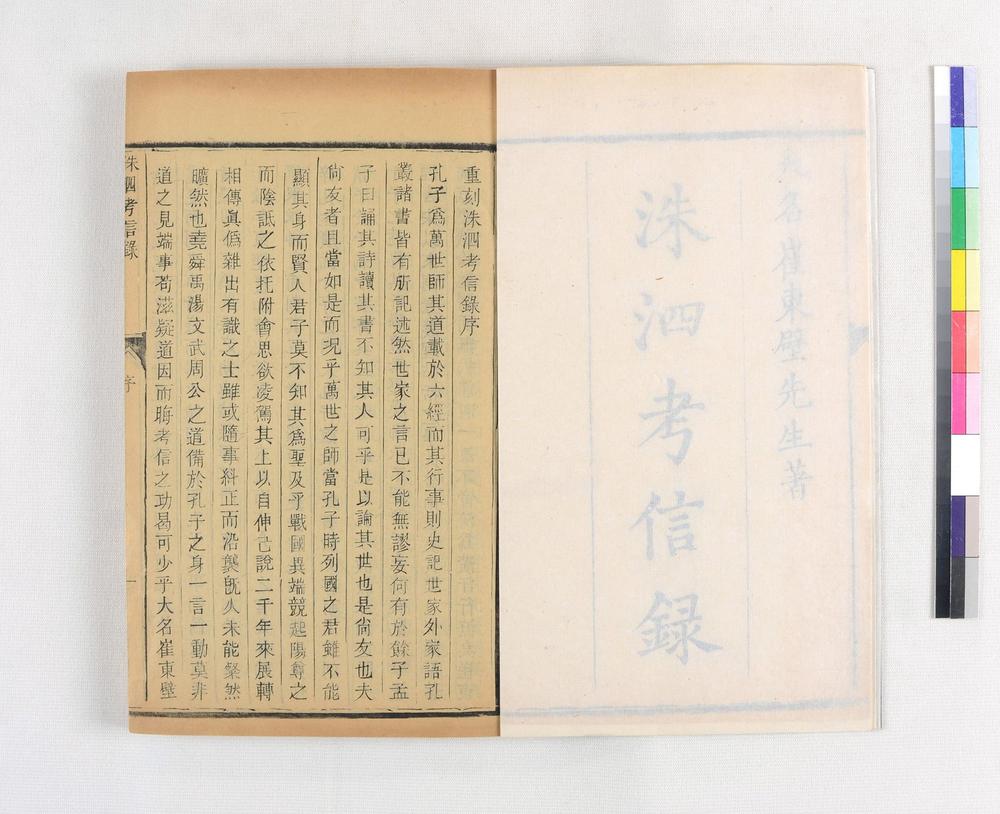 大名崔東壁先生著
洙泗考信録
重刻洙泗考信錄序
孔子爲萬世師其道載於六經而其行事則史記世家外家語孔
叢諸書皆有所記述然世家之言已不能無謬妄何有於餘子孟
子曰誦其詩讀其書不知其人可乎是以論其世也是尙友也夫
尙友者且當如是而况乎萬世之師當孔子時列國之君雖不能
顯其身而賢人君子莫不知其爲聖及乎戰國異端競起陽尊之
而陰詆之依托附會思欲凌駕其上以自伸己說二千年來展轉
相傳眞僞雜出有識之士雖或隨事糾正而沿襲旣久未能粲然
曠然也堯舜禹湯文武周公之道備於孔子之身一言一動莫非
道之見端事苟滋疑道因而晦考信之功曷可少乎大名崔東壁
洙泗考信錄
序
一